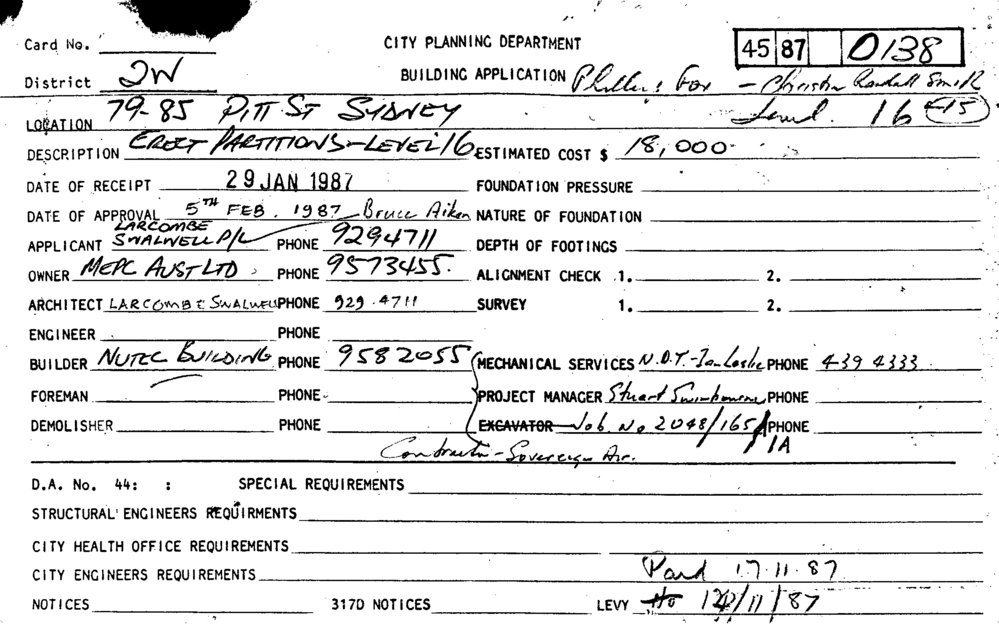 Card No. CITY PLANNING DEPARTMENT 45 87 0138
District 2W BUILDING APPLICATION Phillips Fox - Christin Randall Smith
LOCATION 79-85 PITT ST SYDNEY Level 16 +15
DESCRIPTION ERECT PARTITIONS - LEVEL 16 ESTIMATED COST $ 18,000-
DATE OF RECEIPT 29 JAN 1987 FOUNDATION PRESSURE
DATE OF APPROVAL 5TH FEB. 1987 Bruce Aitken NATURE OF FOUNDATION
APPLICANT LARCOMBE SWALWELL P/L PHONE 9294711 DEPTH OF FOOTINGS
OWNER MEPC AUST LTD PHONE 9573455. ALIGNMENT CHECK .1. 2.
ARCHITECT LARCOMBE SWALWELL PHONE 929.4711 SURVEY 1. 2.
ENGINEER PHONE
BUILDER NUTEC BUILDING PHONE 9582055 MECHANICAL SERVICES N.D.Y. - Ian Leslie PHONE 439 4333
FOREMAN PHONE PROJECT MANAGER Stuart PHONE
DEMOLISHER PHONE EXCAVATOR Job No 2048/165/1A PHONE
Contractor - Sovereign Air.
D.A. No. 44: : SPECIAL REQUIREMENTS
STRUCTURAL ENGINEERS REQUIRMENTS
CITY HEALTH OFFICE REQUIREMENTS
CITY ENGINEERS REQUIREMENTS Pard 17.11.87
NOTICES 317D NOTICES LEVY /11/87